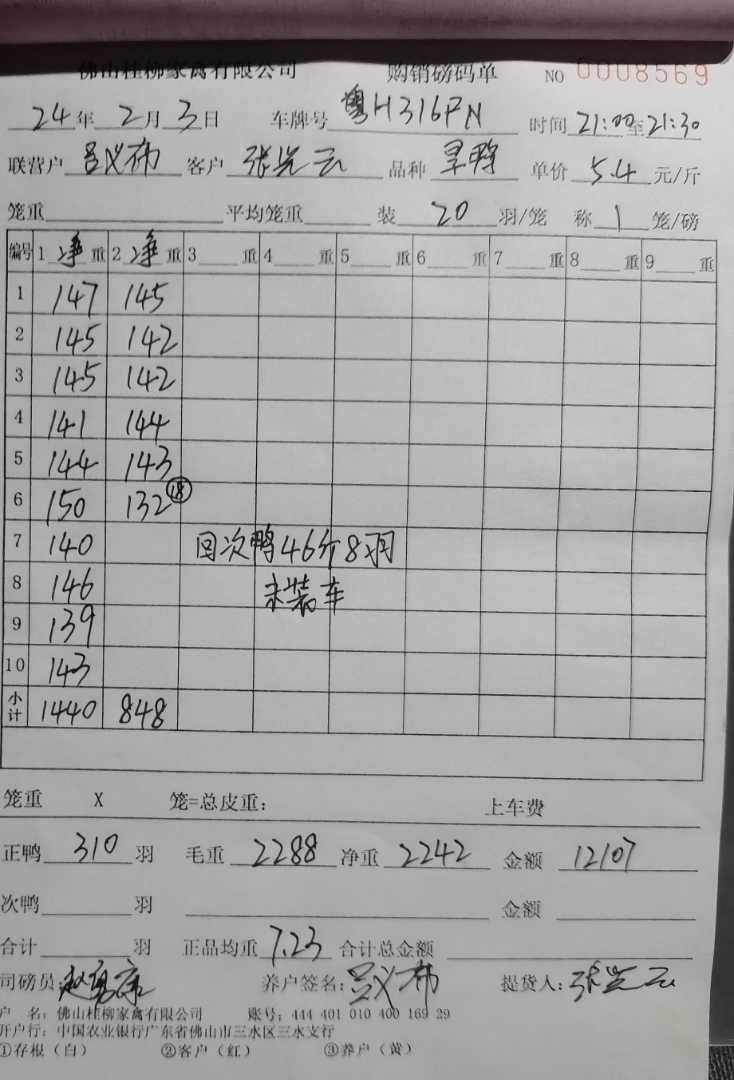 佛山桂柳家禽有限公司 购销磅码单 NO 0008569
24年2月3日 车牌号 粤H316FN 时间 21:00至21:30
联营户 吕义布 客户 张光云 品种 旱鸭 单价 5.4 元/斤
笼重 平均笼重 装 20 羽/笼 称 1 笼/磅
编号 1 净 重 2 净 重 3 重 4 重 5 重 6 重 7 重 8 重 9 重
1 147 145
2 145 142
3 145 142
4 141 144
5 144 143
6 150 132 18
7 140 回次鸭46斤8羽
8 146 未装车
9 139
10 143
小计 1440 848
笼重 X 笼=总皮重: 上车费
正鸭 310 羽 毛重 2288 净重 2242 金额 12107
次鸭 羽 金额
合计 羽 正品均重 7.23 合计总金额
司磅员: 养户签名: 吕义布 提货人: 张光云
户 名: 佛山桂柳家禽有限公司 账号: 444 401 010 400 169 29
开户行: 中国农业银行广东省佛山市三水区三水支行
①存根(白) ②客户(红) ③养户(黄)